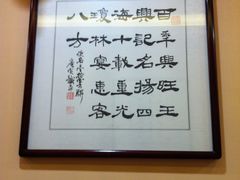 百年興旺王
興記名揚四
海十載重光
瓊林宴惠客
八方